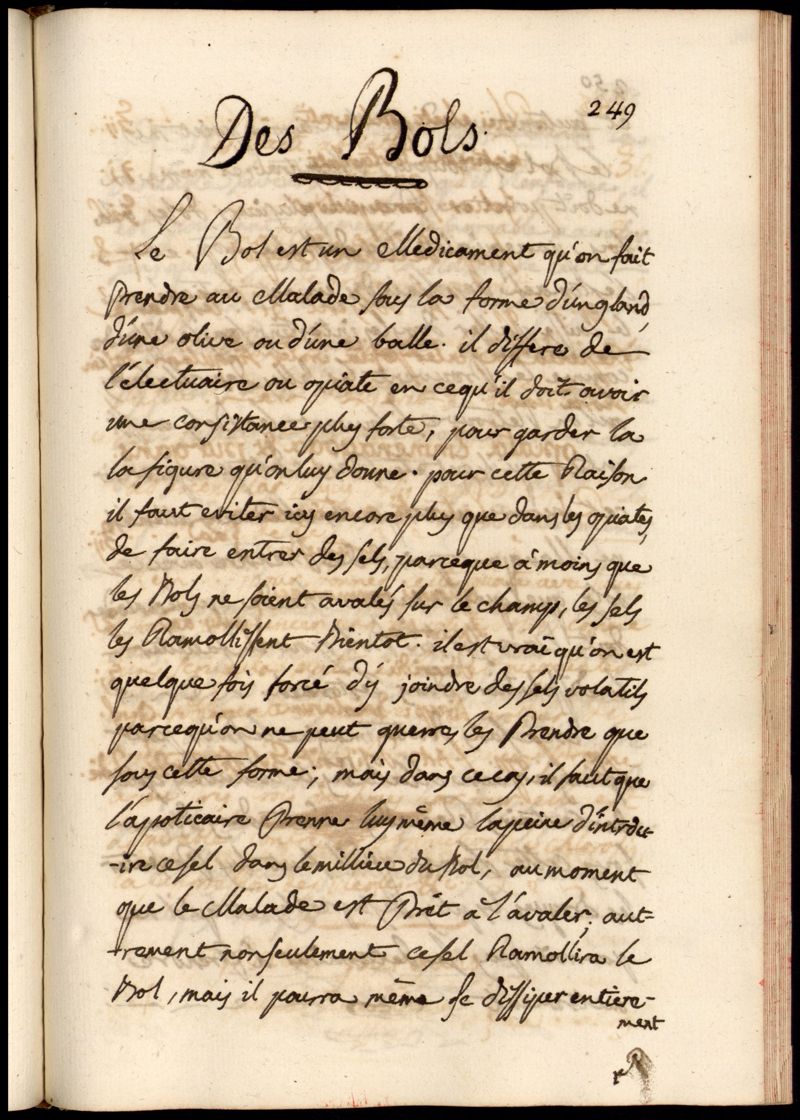 249
Des Bols.
Le Bol est un Medicament qu'on fait
prendre au Malade sous la forme d'un gland,
d'une olive ou d'une balle. il differe de
l'électuaire ou opiate en cequ'il doit avoir
une consistance plus forte, pour garder la
la figure qu'on luy donne. pour cette Raison
il faut eviter icy encore plus que dans les opiates,
de faire entrer des sels, parceque à moins que
les Bols ne soient avalés sur le champ, les sels
les Ramollissent Bientot. il est vrai qu'on est
quelque fois forcé d'y joindre des sels volatils
parcequ'on ne peut guerres les Prendre que
sous cette forme; mais dans ce cas, il faut que
l'apoticaire Prenne luy même la peine d'introdu-
-ire ce sel dans le millieu du Bol, au moment
que le Malade est Prêt à l'avaler; aut-
-trement non seulement ce sel Ramollira le
Bol, mais il pourra même se dissiper entiere-
ment